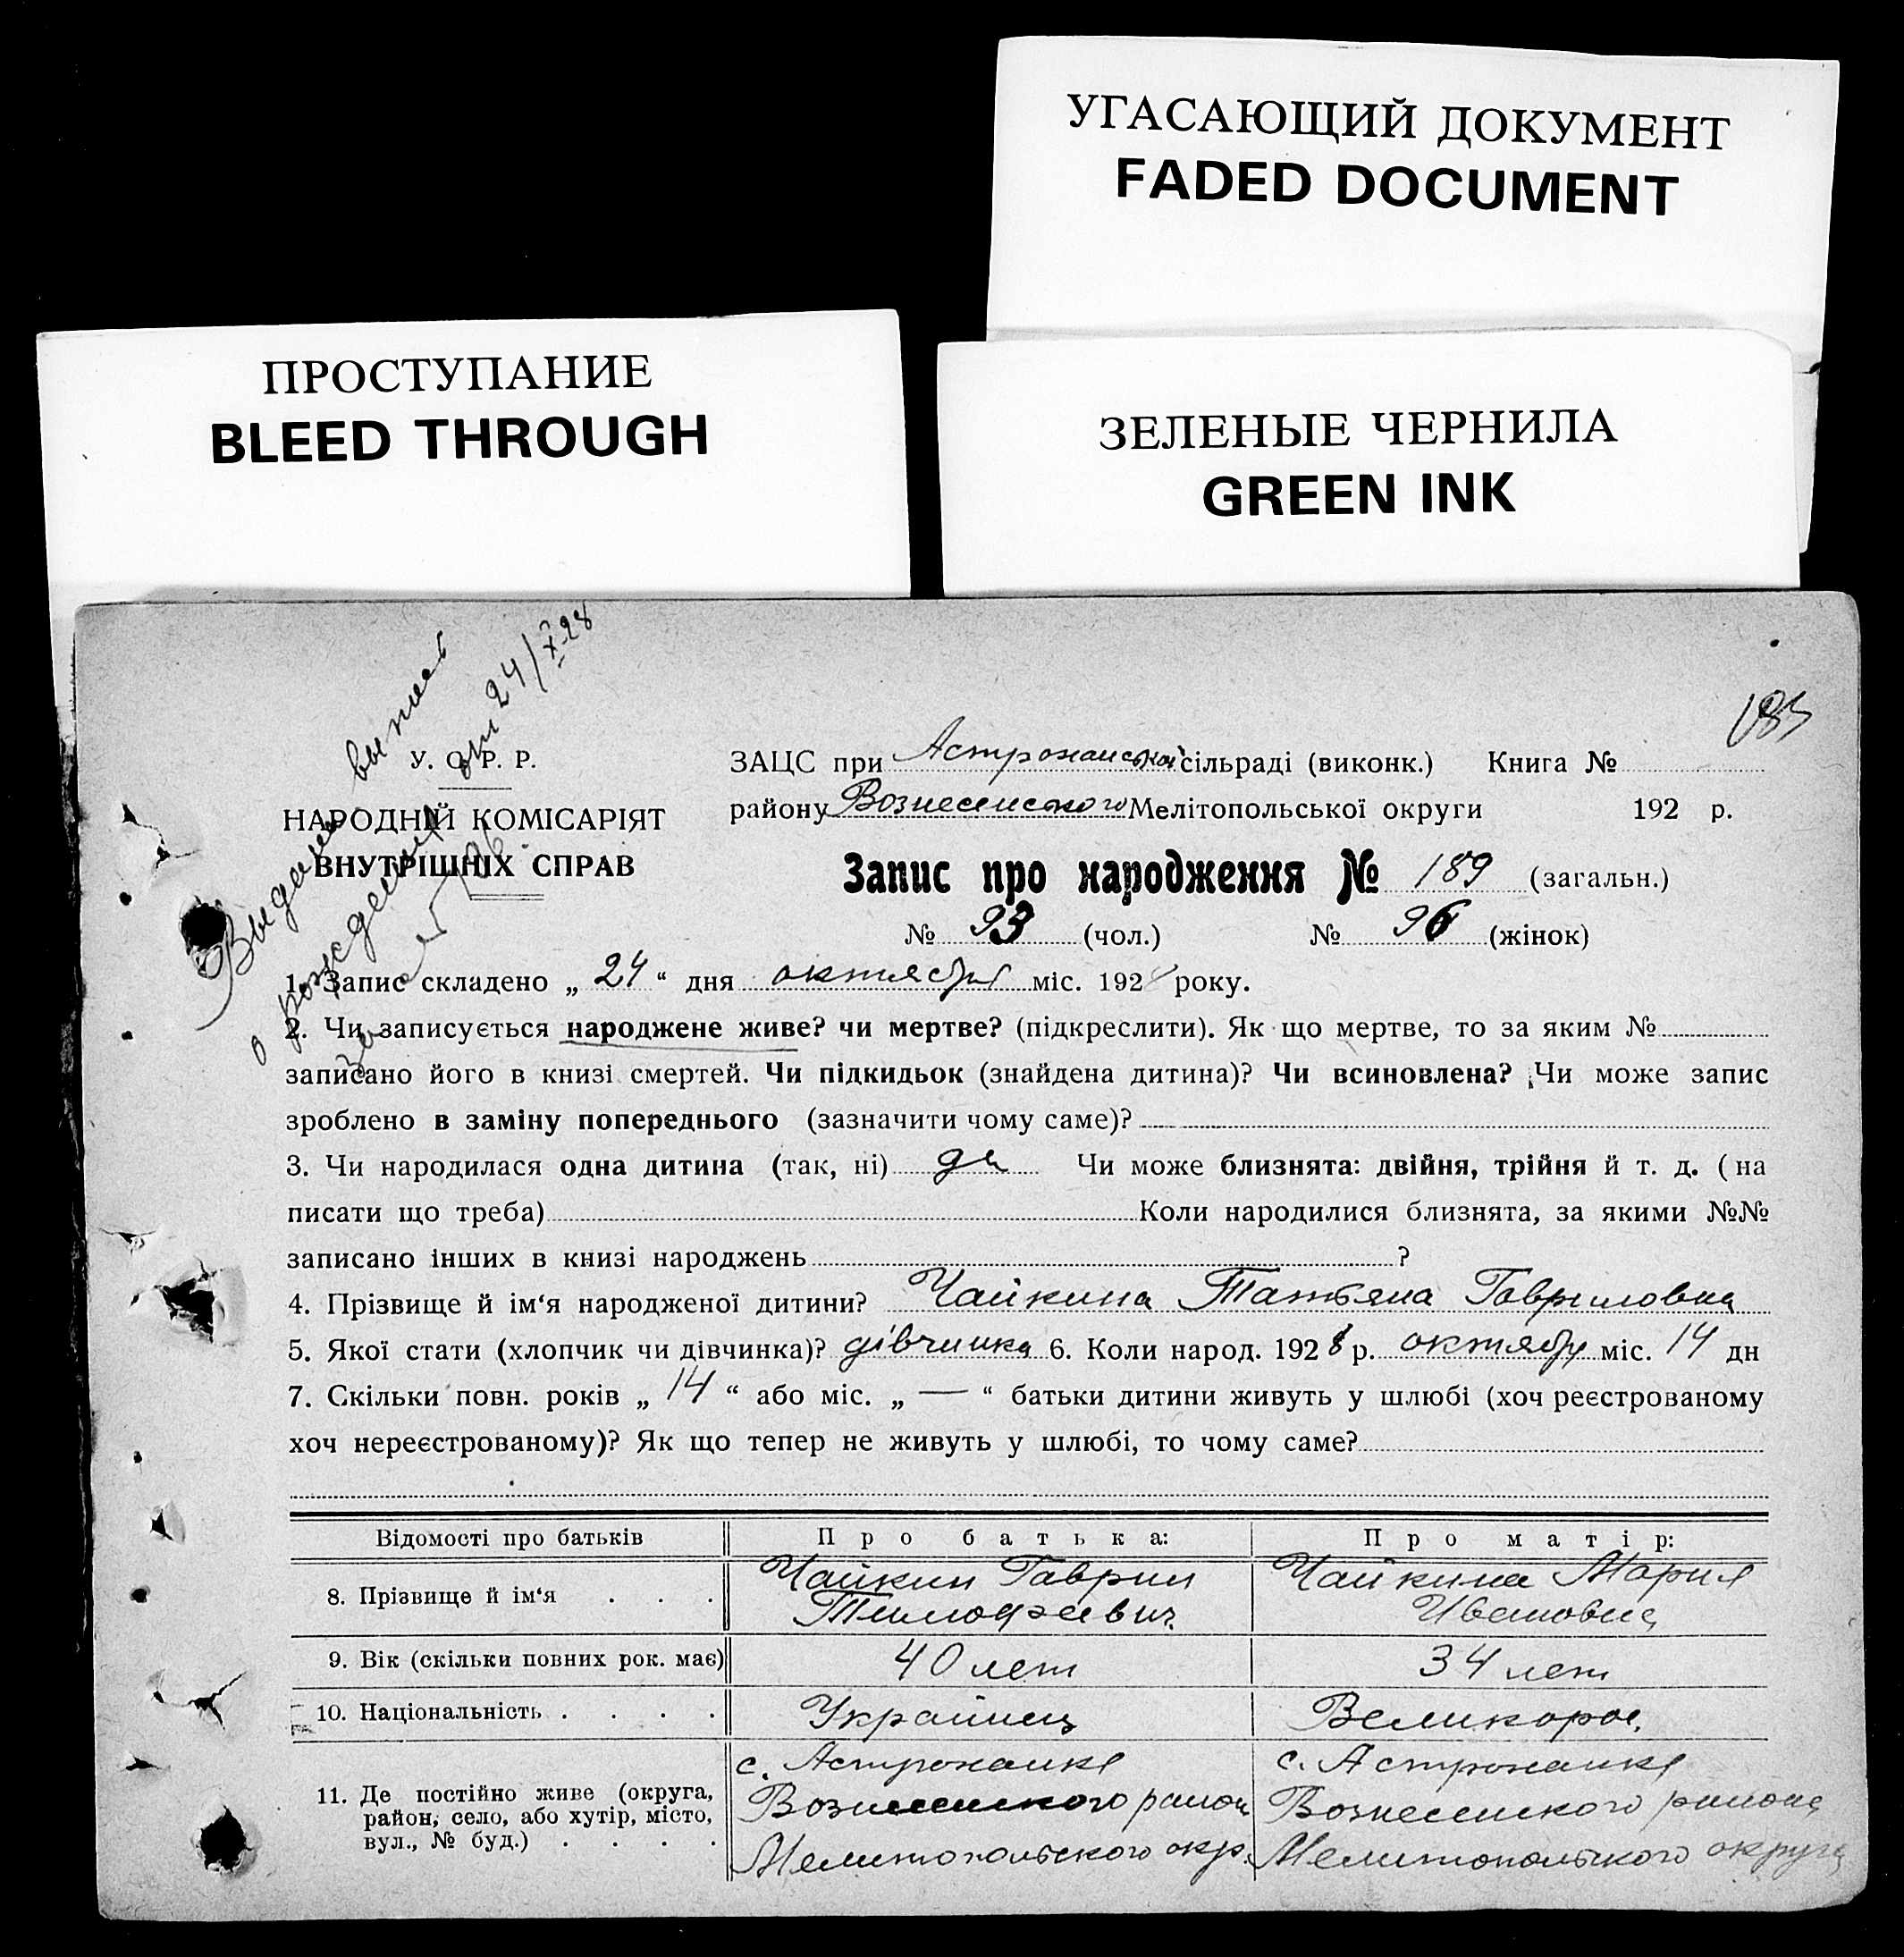 УГАСАЮЩИЙ ДОКУМЕНТ
FADED DOCUMENT
ПРОСТУПАНИЕ
BLEED THROUGH
ЗЕЛЕНЫЕ ЧЕРНИЛА
GREEN INK
185
Выдана выпись
о рождении 24/X-28
за № 96
У. С. Р. Р.
НАРОДНІЙ КОМІСАРІЯТ
ВНУТРІШНІХ СПРАВ
ЗАЦС при Астраханській сільраді (виконк.) Книга №
району Вознесенського Мелітопольської округи 192 р.
Запис про народження № 189 (загальн.)
№ 93 (чол.) № 96 (жінок)
1. Запис складено „ 24 “ дня октября міс. 1928 року.
2. Чи записується народжене живе? чи мертве? (підкреслити). Як що мертве, то за яким №
записано його в книзі смертей. Чи підкидьок (знайдена дитина)? Чи всиновлена? Чи може запис
зроблено в заміну попереднього (зазначити чому саме)?
3. Чи народилася одна дитина (так, ні) да Чи може близнята: двійня, трійня й т. д. (на
писати що треба) Коли народилися близнята, за якими №№
записано інших в книзі народжень ?
4. Прізвище й ім‘я народженої дитини? Чайкина Татьяна Гавриловна
5. Якої стати (хлопчик чи дівчинка)? дівчинка 6. Коли народ. 1928 р. октября міс. 14 дн
7. Скільки повн. років „ 14 “ або міс. „ — “ батьки дитини живуть у шлюбі (хоч реєстрованому
хоч нереєстрованому)? Як що тепер не живуть у шлюбі, то чому саме?
Відомості про батьків Про батька: Про матір:
8. Прізвище й ім‘я . . . Чайкин Гаврил Чайкина Мария
Тимофеевич Ивановна
9. Вік (скільки повних рок. має) 40 лет 34 лет
10. Національність . . . . Украинец Великорос.
11. Де постійно живе (округа, с. Астраханка с. Астраханка
район, село, або хутір, місто, Вознесенского район Вознесенского района
вул., № буд.) . . . . Мелитопольского окр. Мелитопольского округа